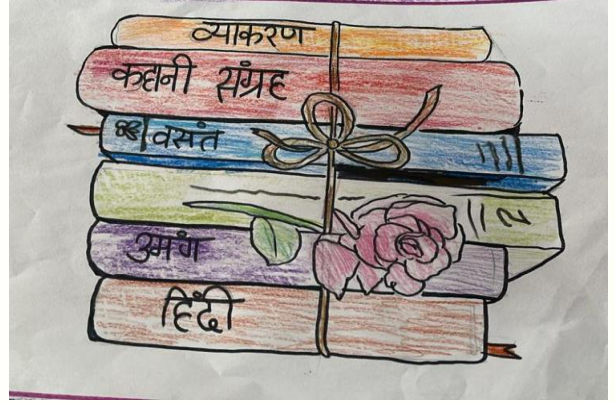 व्याकरण
कहानी संग्रह
वसंत
उमंग
हिंदी